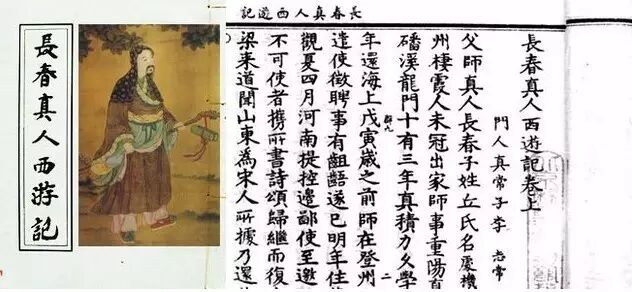 長春真人西游記
長春真人西遊記
長春真人西遊記卷上
門人真常子李 志常
父師真人長春子姓丘氏名處機
州棲霞人未冠出家師事重陽真
磻溪龍門十有三年真積力久學
年還海上戊寅歲之前師在登州
遣使徵聘事有齟齬遂已明年住
觀夏四月河南提控邊鄙使至邀
不可使者攜所書詩頌歸繼而復
梁來道聞山東為宋人所據乃還
二